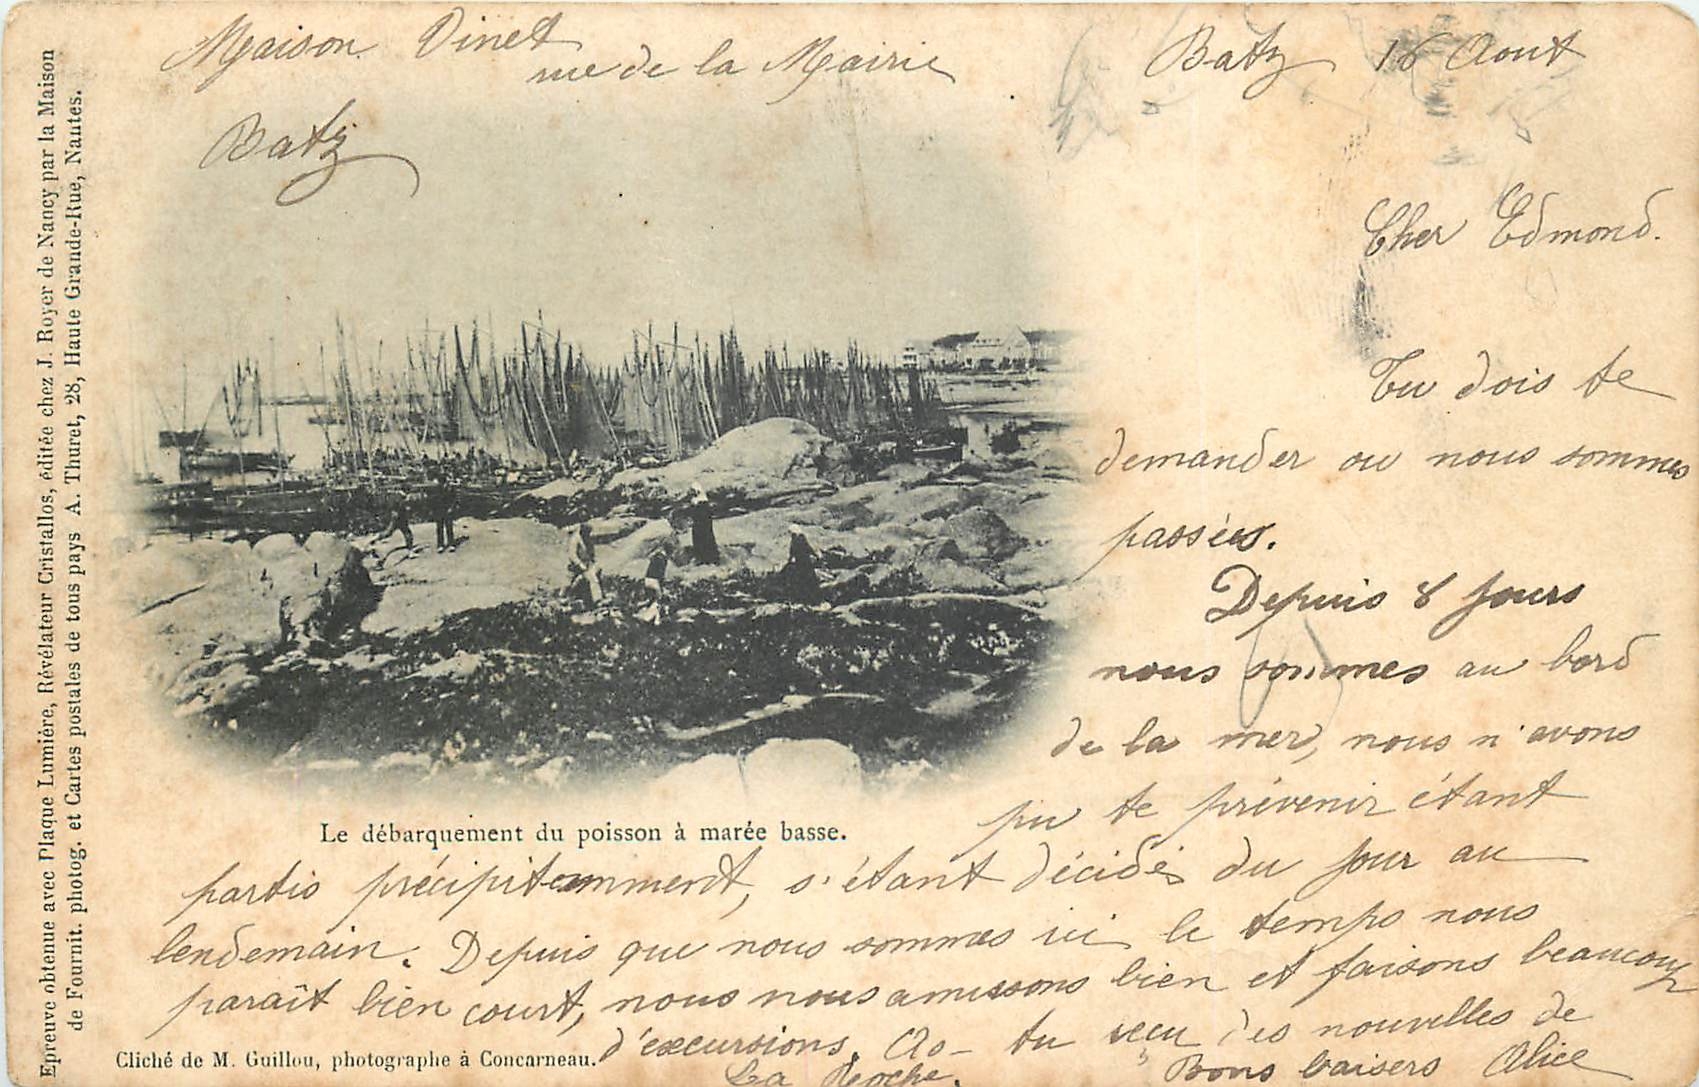 Maison Vinet
rue de la Mairie
Batz
Batz 16 Aout
Cher Edmond.
Tu dois te
demander ou nous sommes
passées.
Depuis 8 jours
nous sommes au bord
de la mer, nous n'avons
pu te prévenir étant
partis précipitamment, s'étant décidés du jour au
lendemain. Depuis que nous sommes ici le temps nous
paraît bien court, nous nous amusons bien et faisons beaucoup
d'excursions. As-tu reçu des nouvelles de
La Roche.
Bons baisers Alice
Le débarquement du poisson à marée basse.
Cliché de M. Guillou, photographe à Concarneau.
Epreuve obtenue avec Plaque Lumière, Révélateur Cristallos, éditée chez J. Royer de Nancy par la Maison
de Fournit. photog. et Cartes postales de tous pays A. Thuret, 28, Haute Grande-Rue, Nantes.